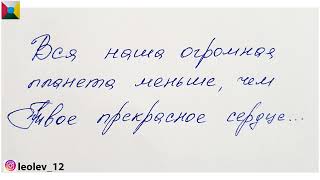 Вся наша огромная
планета меньше, чем
Твое прекрасное сердце...
leolev_12